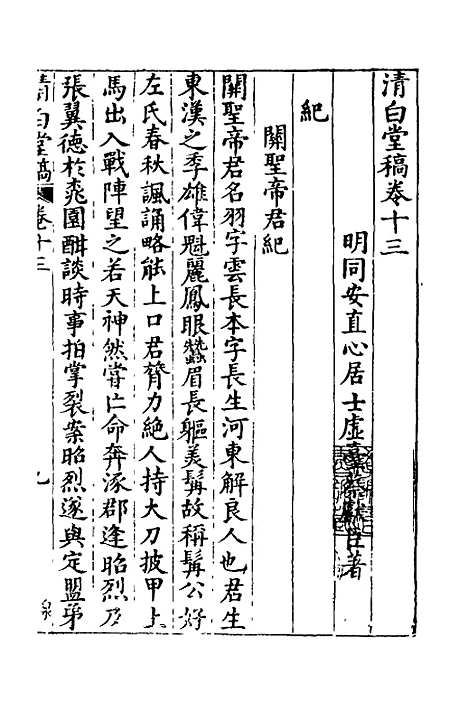 清白堂稿卷十三
明同安直心居士虛臺蔡獻臣著
紀
關聖帝君紀
關聖帝君名羽字雲長本字長生河東解良人也君生
東漢之季雄偉魁麗鳳眼蠶眉長軀美髯故稱髯公好
左氏春秋諷誦略能上口君膂力絕人持大刀披甲上
馬出入戰陣望之若天神然嘗亡命奔涿郡逢昭烈乃
張翼德於桃園酣談時事拍掌裂案昭烈遂與定盟第
清白堂稿 卷十三